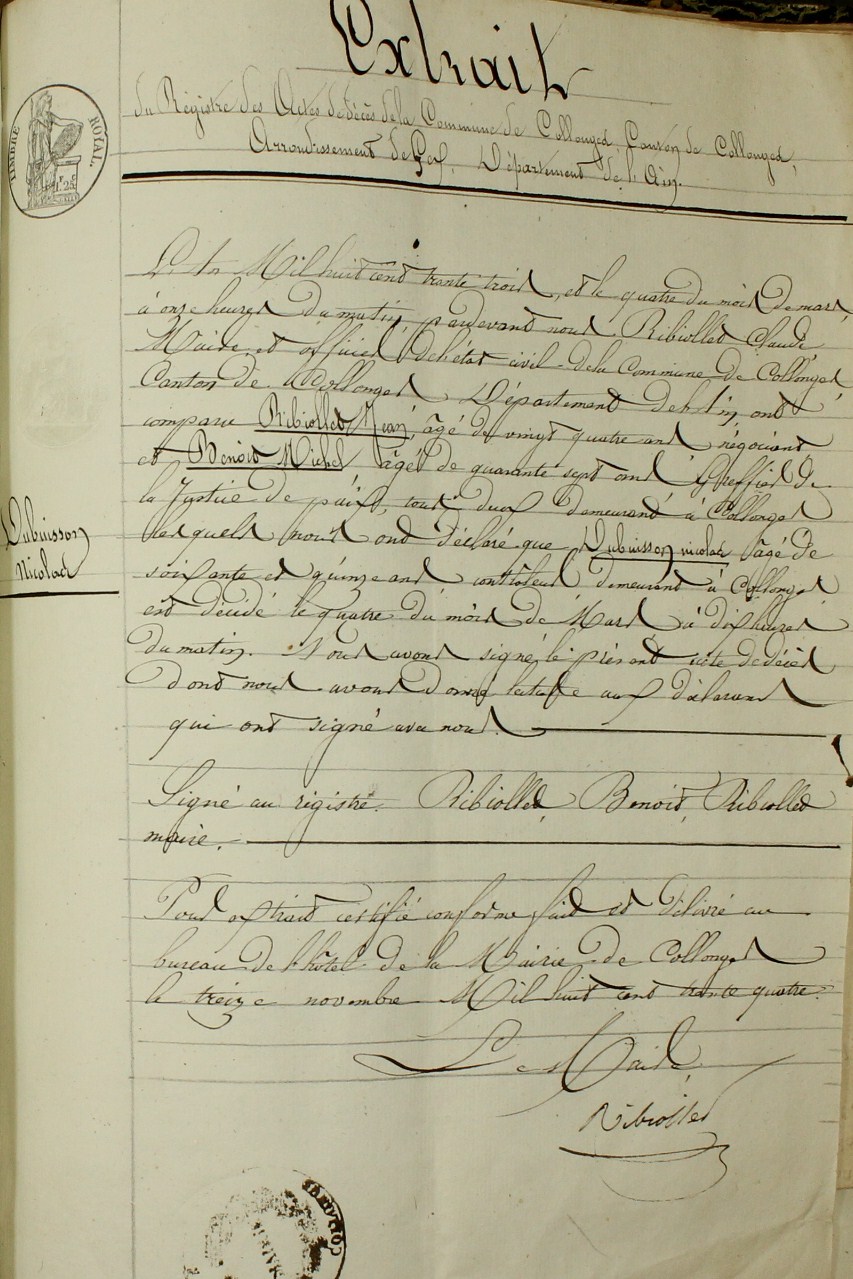 Extrait
du Régistre des Actes de décès de la Commune de Collonges, Canton de Collonges,
Arrondissement de Gex, Département de l'Ain.
TIMBRE ROYAL.
1F. 25c
L'An Mil huit cent trente trois, et le quatre du mois de mars,
à onze heures du matin, pardevant nous Ribiollet Claude
Maire et officier de l'état civil de la Commune de Collonges
Canton de Collonges Département de l'Ain, ont
comparu Ribiollet Jean, âgé de vingt quatre ans négociant
et Benoit Michel âgé de quarante sept ans Greffier de
la Justice de paix, tous deux demeurant à Collonges
lesquels nous ont déclaré que Dubuisson nicolas âgé de
Dubuisson
Nicolas
soixante et quinze ans contrôleur demeurant à Collonges
est décédé le quatre du mois de Mars à dix heures
du matin. Nous avons signé le présent acte de décès
dont nous avons donné lecture aux déclarans
qui ont signé avec nous.
Signé au régistre. Ribiollet, Benoit, Ribiollet
maire.
Pour extrait certifié conforme fait et délivré au
bureau de l'hôtel de la Mairie de Collonges
le treize novembre Mil huit cent trente quatre.
Le Maire
Ribiollet